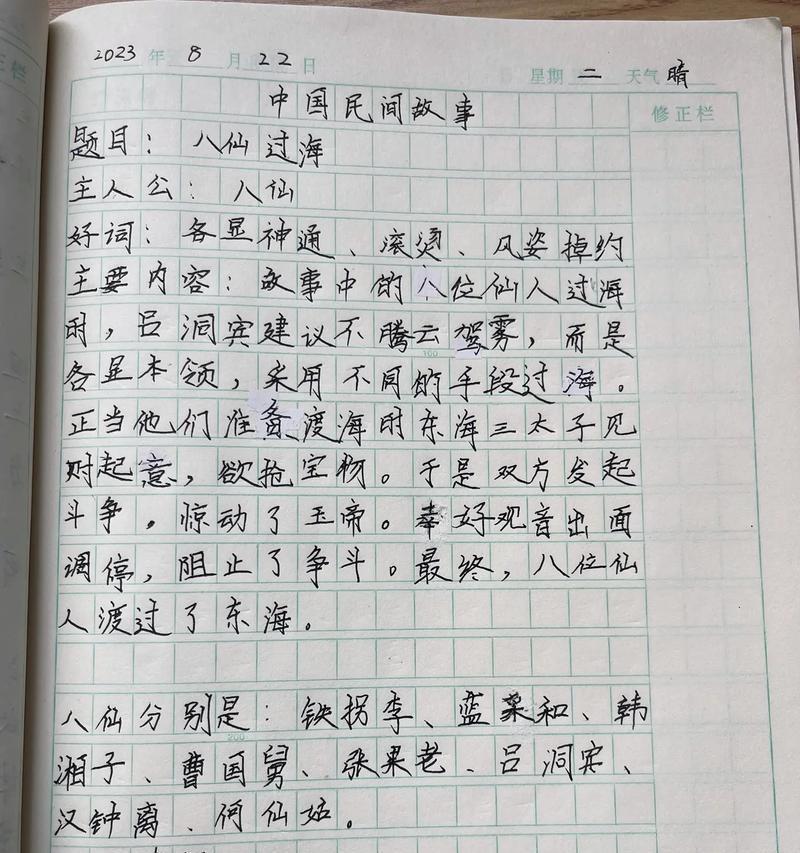 2023 年 8 月 22 日 星期 二 天气 晴
中国民间故事
修正栏
题目：八仙过海
主人公：八仙
好词：各显神通、滚烫、风姿掉约
主要内容：故事中的八位仙人过海
时，吕洞宾建议不腾云驾雾，而是
各显本领，采用不同的手段过海。
100
正当他们准备渡海时东海三太子见
财起意，欲抢宝物。于是双方发起
斗争，惊动了玉帝。幸好观音出面
调停，阻止了争斗。最终，八位仙
人渡过了东海。
八仙分别是：铁拐李、蓝采和、韩
200
湘子、曹国舅、张果老、吕洞宾、
汉钟离、何仙姑。